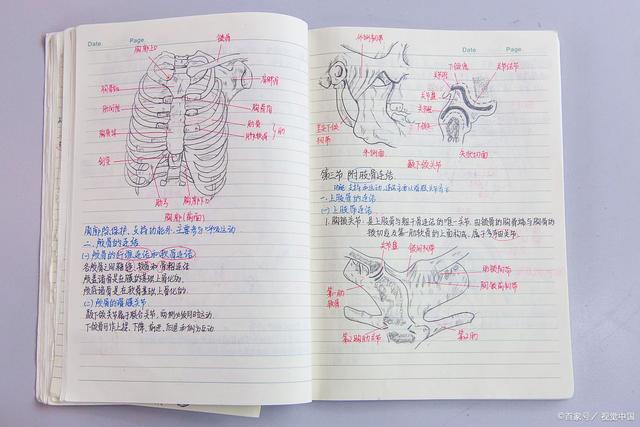 Date.
Page.
胸廓上口
锁骨
肩胛骨
胸骨柄
胸骨角
肋间隙
胸骨体
剑突
肋弓
胸廓下口
胸廓(前面)
胸廓除保护、支持功能外,主要参与呼吸运动
二、颅骨的连结
(一)颅骨的纤维连结和软骨连结
各颅骨之间借缝、软骨和骨相连结
颅盖诸骨是在膜的基础上骨化的
颅底诸骨是在软骨基础上骨化的
(二)颅骨的滑膜关节
颞下颌关节属于联合关节,两侧必须同时运动
Date
Page.
外侧韧带
茎突下颌
韧带
外侧面
下颌窝
关节结节
关节盘
矢状切面
颞下颌关节
第三节 附肢骨连结
一、上肢骨连结
(一)上肢带连结
1. 胸锁关节:是上肢骨与躯干骨连结的唯一关节,由锁骨的胸骨端与胸骨的
锁切迹及第一肋软骨的上面构成,属于多轴关节
关节盘
锁间韧带
肋锁韧带
胸锁前韧带
第一肋
软骨
第2胸肋关节
第2肋
©百家号/视觉中国